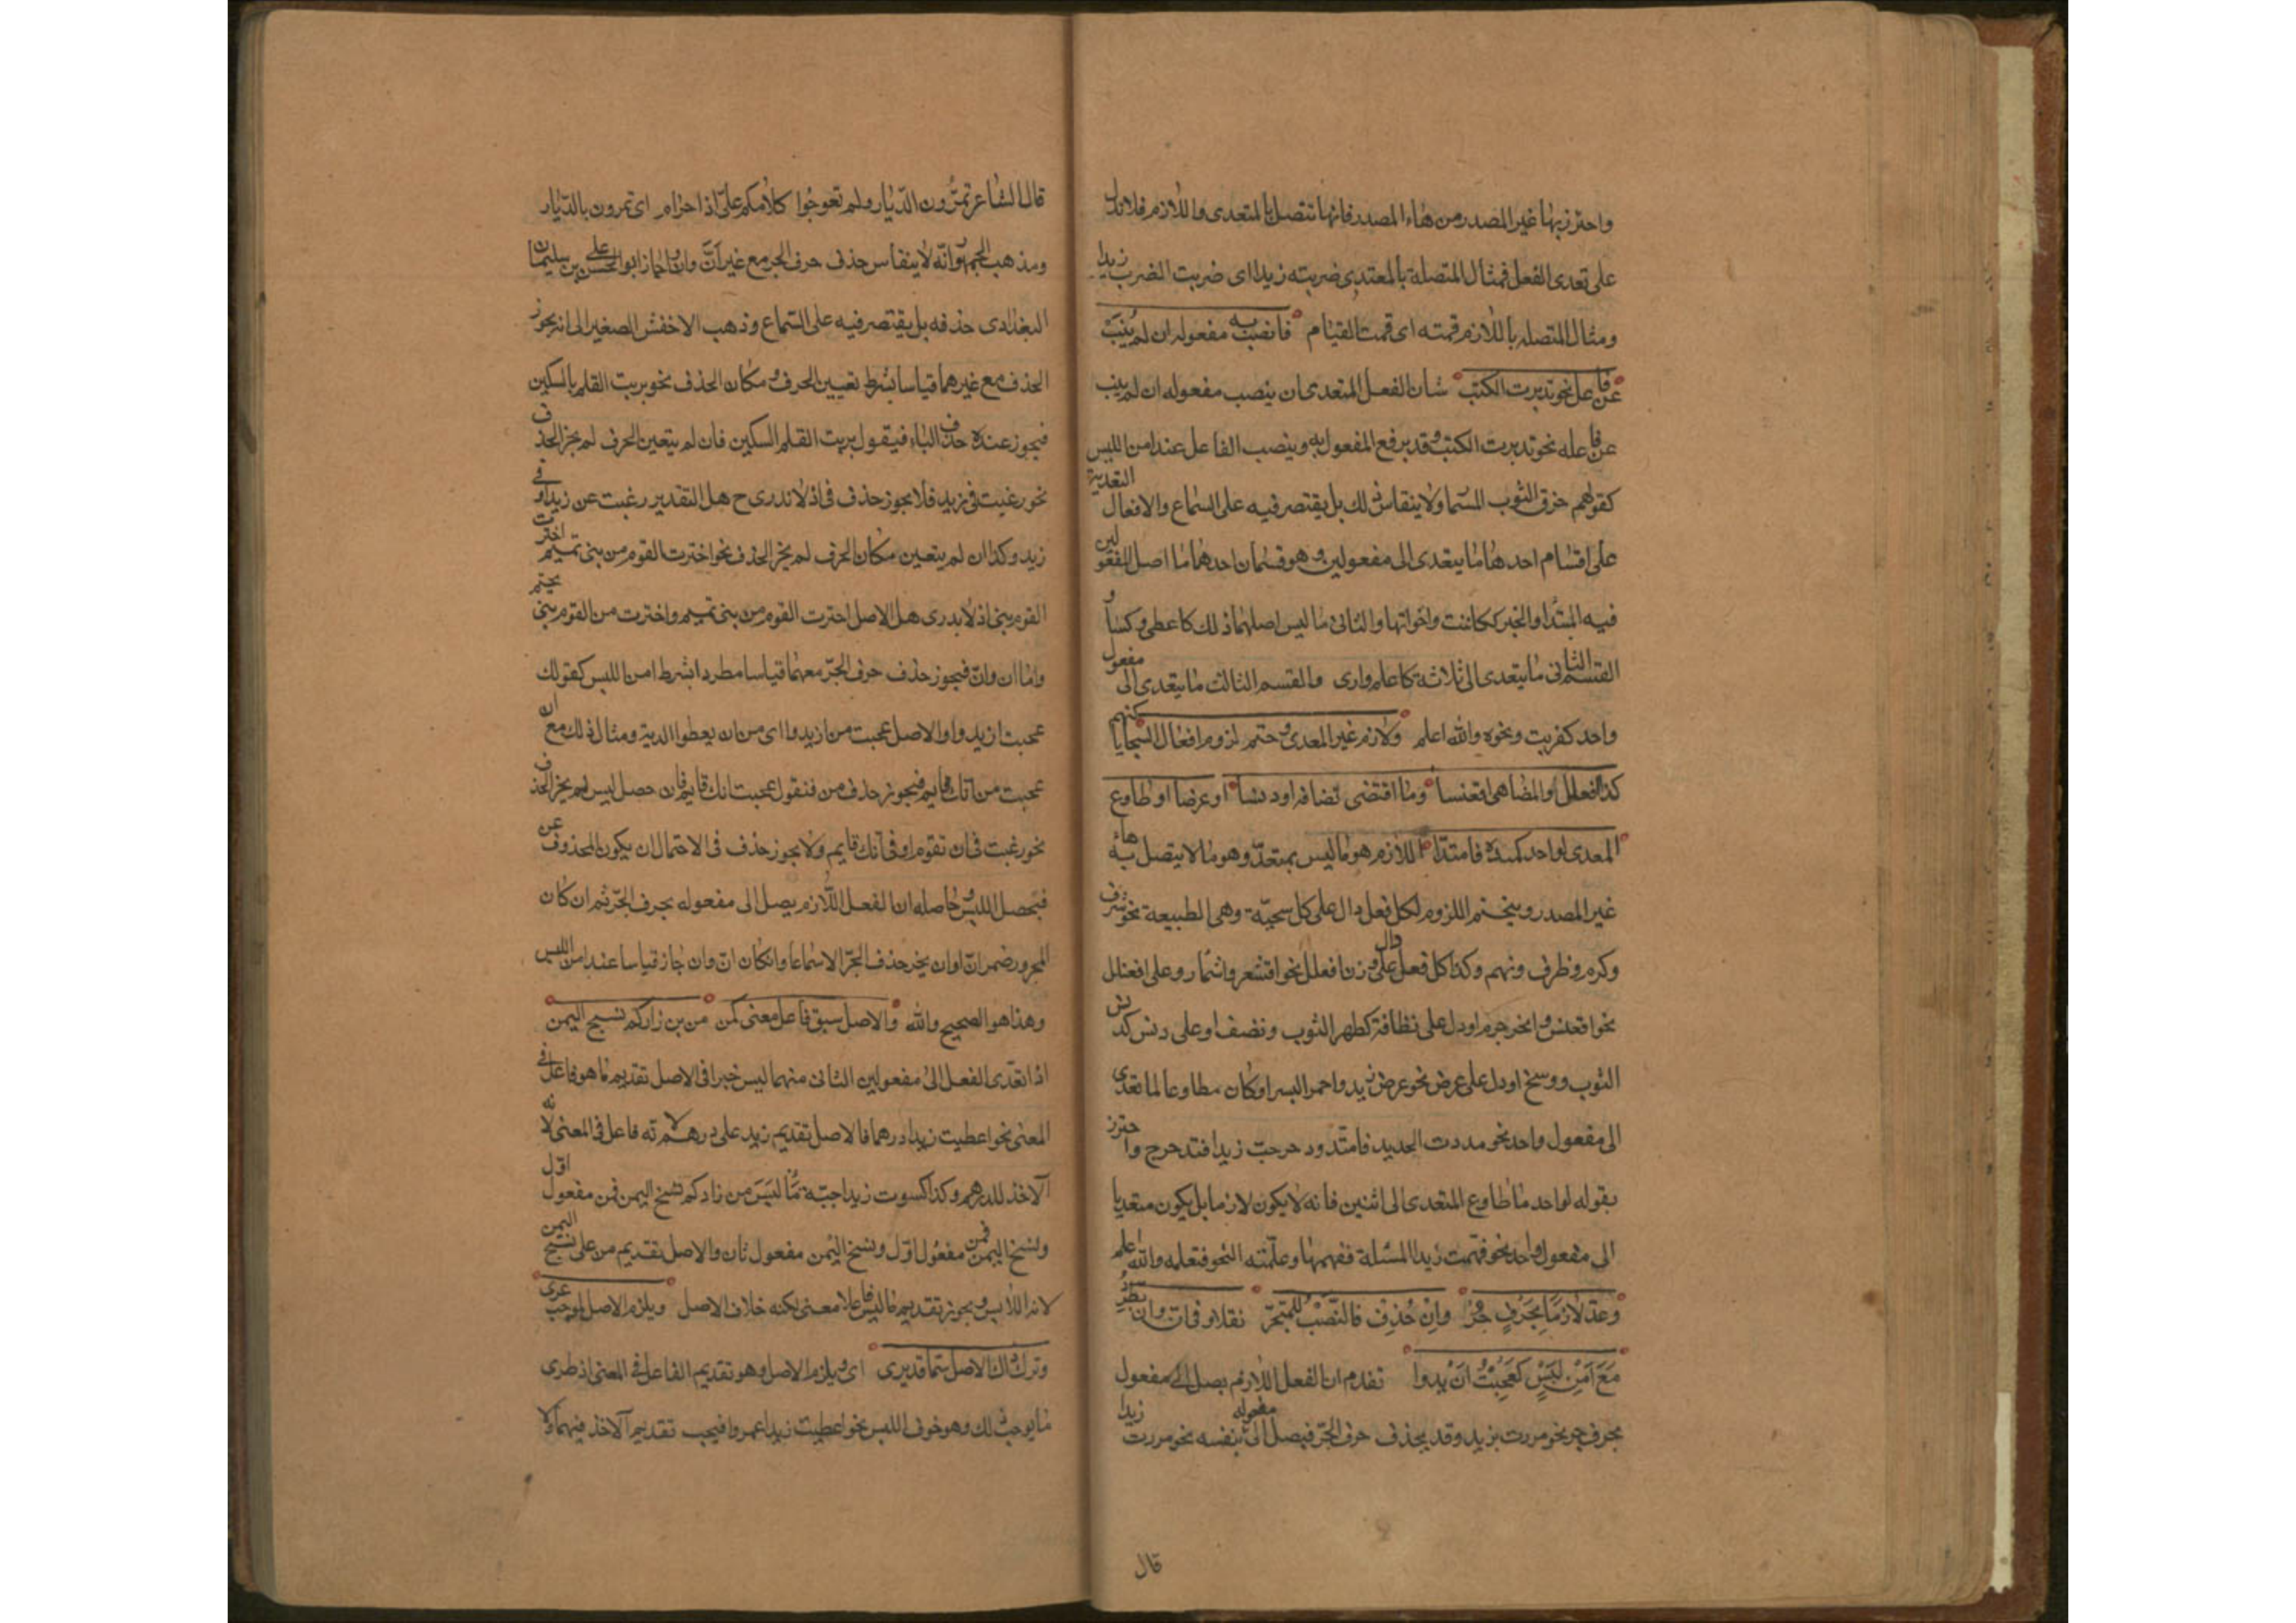 واحترز بها غير المصدر من هاء المصدر فانها تتصل بالمتعدى واللازم فلا تدل
على تعدى الفعل فمثال المتصلة بالمعتدى ضربته زيدا اى ضربت الضرب زيدا
ومثال المتصله باللازم قمته اى قمت القيام فانصب به مفعوله ان لم يَنُبْ
عن فاعل نحو تدبرت الكتب شان الفعل المتعدى ان ينصب مفعوله ان لم ينب
عن فاعله نحو تدبرت الكتب وقد يرفع المفعول به وينصب الفاعل عند امن اللبس
كقولهم خرق الثوب المسما ولا ينقاس ذلك بل يقتصر فيه على السماع والافعال التعدية
على اقسام احدها ما يتعدى الى مفعولين وهو قسمان احدهما ما اصل المفعولين
فيه المبتدا والخبر ككانت واخواتها والثانى ما ليس اصلهما ذلك كاعطى وكسا و
القسم الثانى ما يتعدى الى ثلاثة كاعلم وارى والقسم الثالث ما يتعدى الى مفعول
واحد كضربت ونحوه والله اعلم ولازم غير المعدى وحتم لزوم افعال السجايا كنهم
كذا افعلل والمضاهى اقعنسا وما اقتضى نضافه او دنسا او عرضا او طاوع
المعدى لواحد كمده فامتدا اللازم هو ما ليس بمتعد وهو ما لا يتصل به هاء
غير المصدر ويتحتم اللزوم لكل فعل دال على كل سجيّة وهى الطبيعة نحو شرف
وكرم وظرف ونهم وكذا كل فعل دال على وزن افعلل نحو اقشعر واشمأر وعلى افعنلل
نحو اقعنس واحرنجم او دل على نظافة كطهر الثوب ونضف او على دنس كدنس
الثوب ووسخ او دل على عرض نحو عرض زيد واحمر البسر او كان مطاوعا لما تعدى
الى مفعول واحد نحو مددت الحديد فامتد ودحرجت زيدا فتدحرج واحترز
بقوله لواحد ما طاوع المتعدى الى اثنين فانه لا يكون لازما بل يكون متعديا
الى مفعول واحد نحو فهّمت زيدا المسئلة ففهمها وعلّمته النحو فتعلمه والله اعلم
وعدّ لازما بحرف جر وان حُذِف فالنَّصْبُ للمنجرّ نقلا وفى انّ وان يطرد
مَعَ اَمْنِ لَبْسٍ كَعَجِبْتُ اَنْ يدوا تقدم ان الفعل اللازم يصل الى مفعول
بحرف جر نحو مررت بزيد وقد يحذف حرف الجرّ فيصل الى مفعوله بنفسه نحو مررت زيدا
قال
قال الشاعر تمرّون الدّيار ولم تعوجُوا كلامكم علىّ اذا حرام اى تمرون بالدّيار
ومذهب الجمهور انّه لا ينقاس حذف حرف الجر مع غير انّ وان واجاز ابو الحسن على بن سليمان
البغدادى حذفه بل يقتصر فيه على السماع وذهب الاخفش الصغير الى انه يجوز
الحذف مع غيرهما قياسا بشرط تعيين الحرف ومكان الحذف نحو بريت القلم بالسكين
فيجوز عنده حذف الباء فيقول بريت القلم السكين فان لم يتعين الحرف لم يجز الحذف
نحو رغبت فى زيد فلا يجوز حذف فى اذ لا ندرى ح هل التقدير رغبت عن زيد او فى
زيد وكذا ان لم يتعين مكان الحرف لم يجز الحذف نحو اخترت القوم من بنى تميم اخترت
القوم بنى اذ لا يدرى هل الاصل اخترت القوم من بنى تميم واخترت من القوم بنى
واما ان وانّ فيجوز حذف حرف الجرّ معهما قياسا مطردا بشرط امن اللبس كقولك
عجبت ان يدوا والاصل عجبت من ان يدوا اى من ان يعطوا الدية ومثال ذلك مع ان
عجبت من انك قايم فيجوز حذف من فتقول عجبت انك قايم فان حصل لبس لم يجز الحذف
نحو رغبت فى ان تقوم او فى انك قايم ولا يجوز حذف فى الاحتمال ان يكون المحذوف عن
فيحصل اللبس وحاصله ان الفعل اللازم يصل الى مفعوله بحرف الجرّ ثم ان كان
المجرور ضمير انّ او ان يجز حذف الجرّ الا سماعا وان كان انّ وان جاز قياسا عند امن اللبس
وهذا هو الصحيح والله والاصل سبق فاعل معنى كمن من بن زاركم نسيج اليمن
اذا تعدى الفعل الى مفعولين الثانى منهما ليس خبرا فى الاصل تقديم ما هو فاعل فى
المعنى نحو اعطيت زيدا درهما فالاصل تقديم زيد على درهم لانه فاعل فى المعنى لانه
الآخذ للدرهم وكذا كسوت زيدا جبّة من زادكم نسيج اليمن فمن مفعول اول
ونسيج اليمن فمن مفعول اوّل ونسيج اليمن مفعول ثان والاصل تقديم من على نسيج اليمن
لانه اللابس ويجوز تقديم ما ليس فاعلا معنى لكنه خلاف الاصل ويلزم الاصل لموجب عرى
وترك ذاك الاصل حتما قد يرى اى ويلزم الاصل وهو تقديم الفاعل فى المعنى اذ طرى
ما يوجب ذلك وهو خوف اللبس نحو اعطيت زيدا عمروا فيجب تقديم الآخذ فيهما ولا